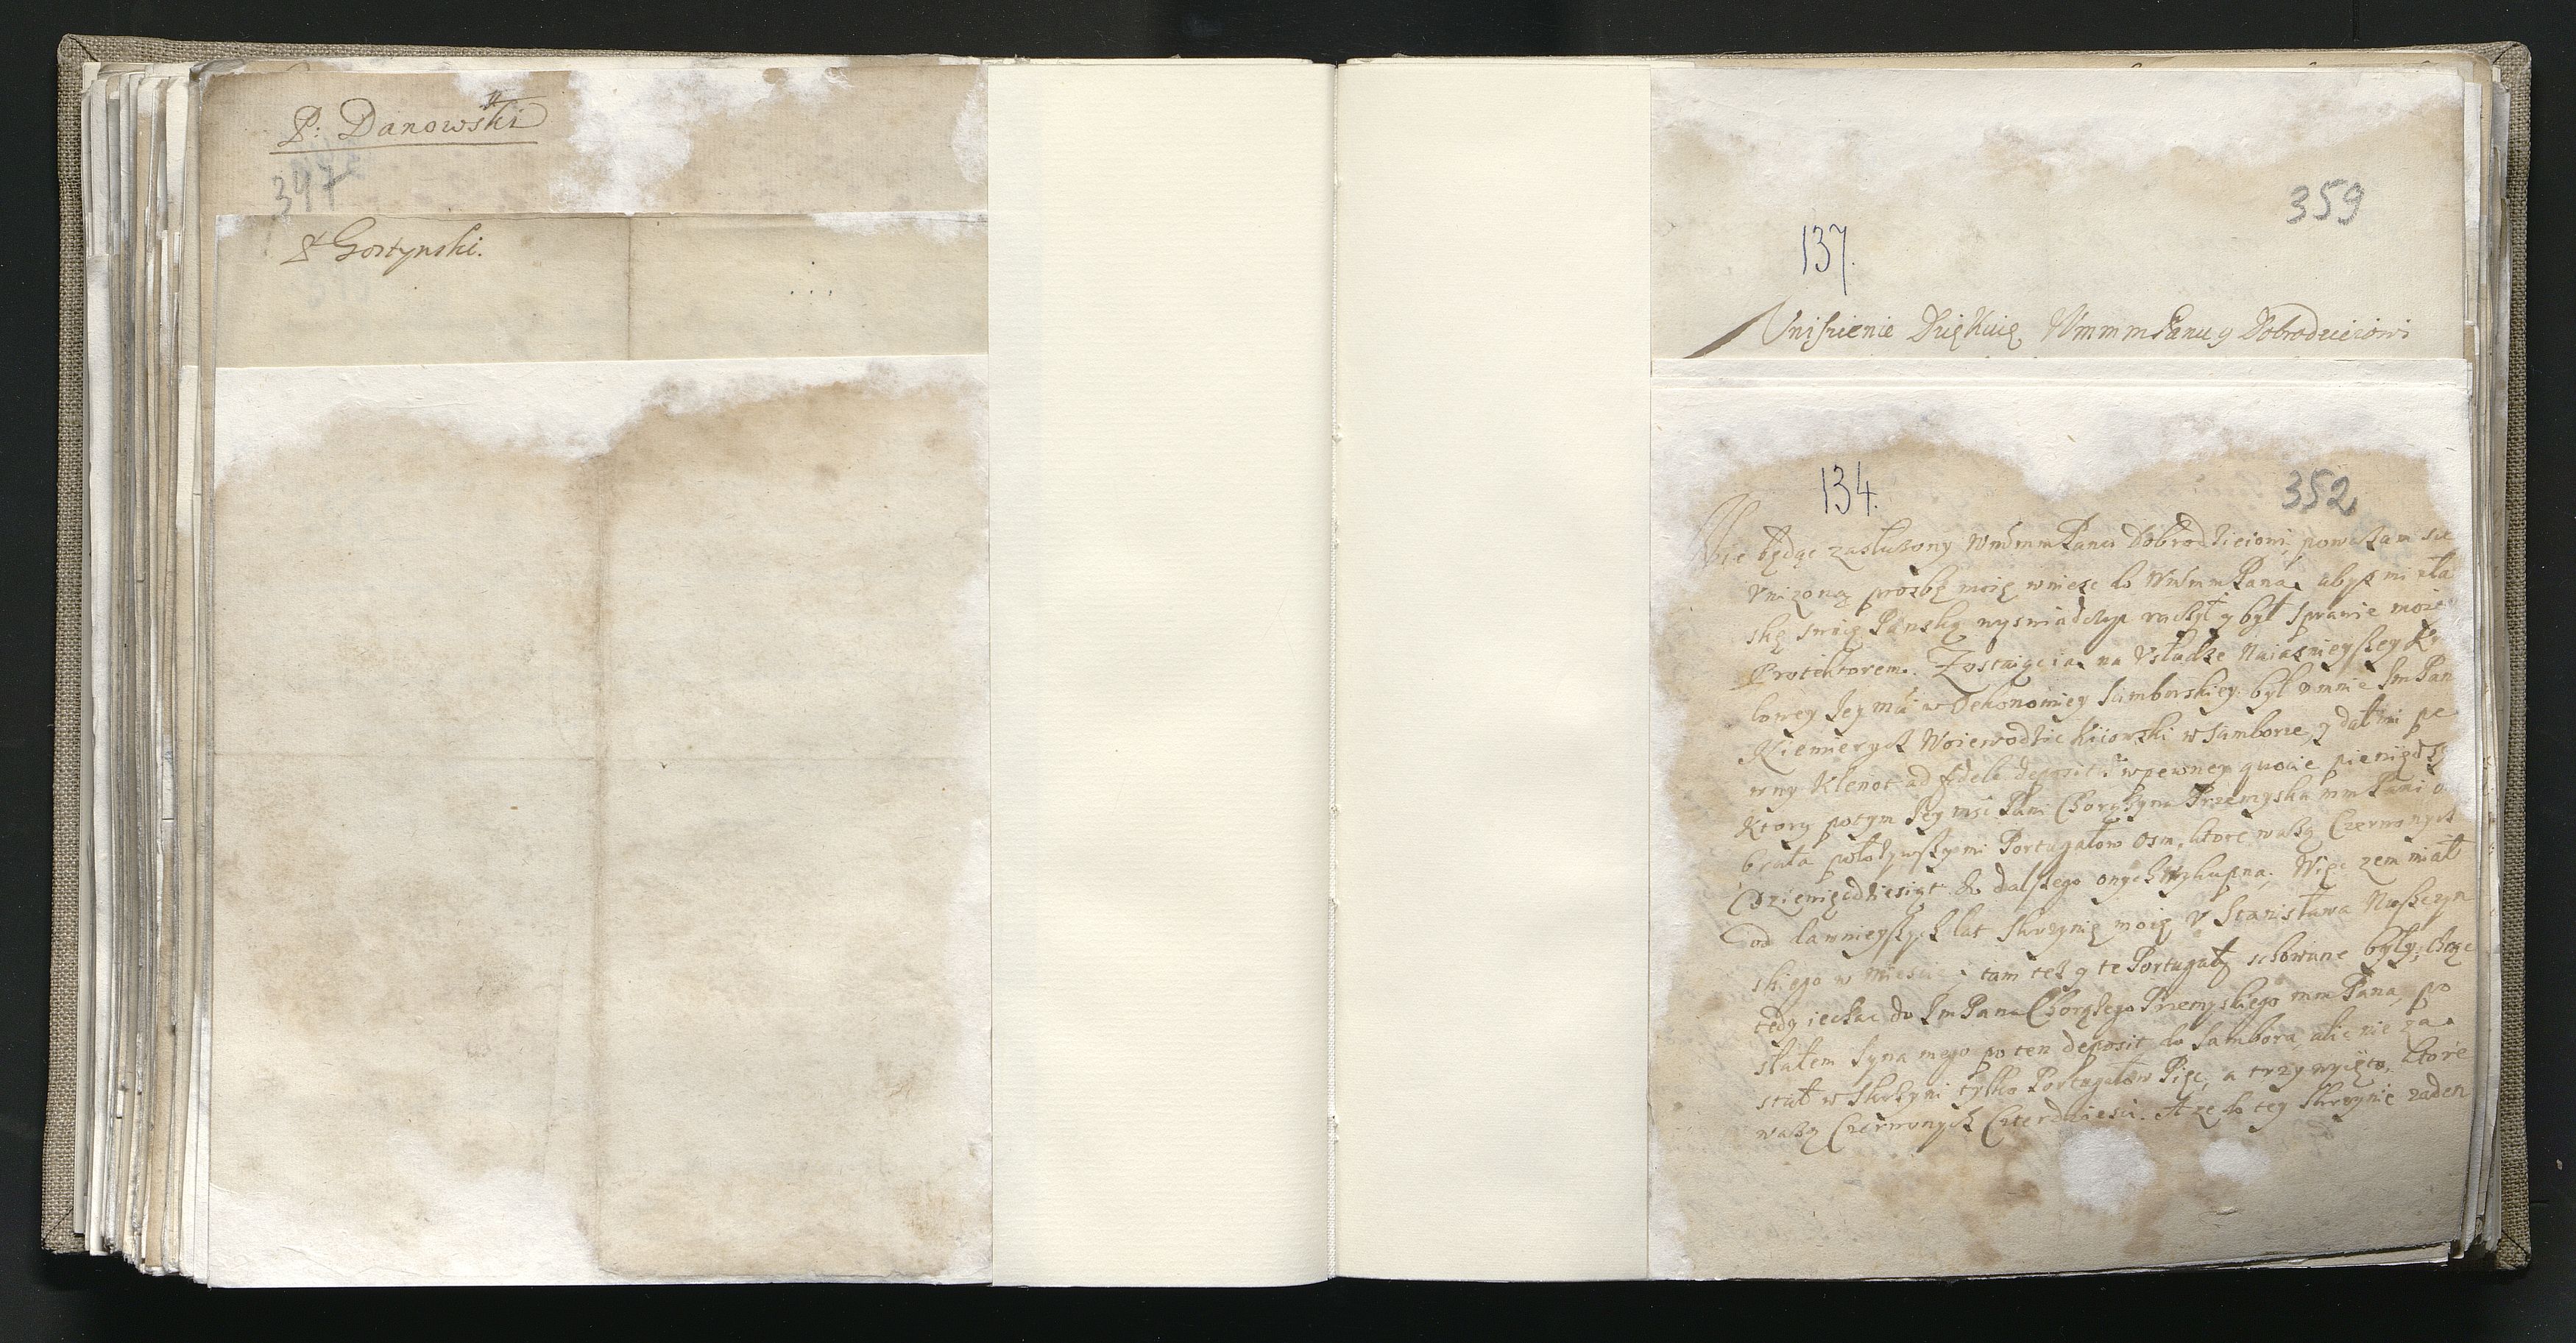 P: Danowski
347
P Gostynski.
359
137.
Uniżenie Dziękuię Wmmm Panu y Dobrodzieiowi
134.
352
Nie będąc zasłużony Wmmm Panu Dobrodzieiowi, poważam się
Vnizoną prozbę moię wniesc do Wmmm Pana, abyś mi ła
skę swoię Pańską wyswiadczyc raczył y był sprawie moiey
Protektorem. Zostaięcia na Vsłudze Naiasnieyszey Kr
lowey Jey Mći w Oekonomiey Samborskiey był v mnie Jm Pan
Niemierycz Woiewodzic Kiiowski w Samborze, y dał mi pe
wny Klenot ad fideli deposit: w pewney quocie pieniędzy
Ktory potym Jey msć Pani Chorążyna Przemyska mm Pani o
brała położywszy mi Portugałow Osm, ktore ważą Czerwonych
Dziewięćdziesiąt do dalszego onych wykupna. Więc zem miał
od dawnieyszych lat skrzynię moię V Stanisława Naszczyn
skiego w miescie, tam tesz y te Portugały schowane były; chcąc
tedy iechac do Jm Pana Chorążego Przemyskiego mm Pana, po
słałem syna mego po ten deposit do Sambora, alić nie za
stał w skrzyni tylko Portugałow Pięc, a trzy wzięto, ktore
ważą Czerwonych Czterdziesci. A że do tey skrzynie zaden